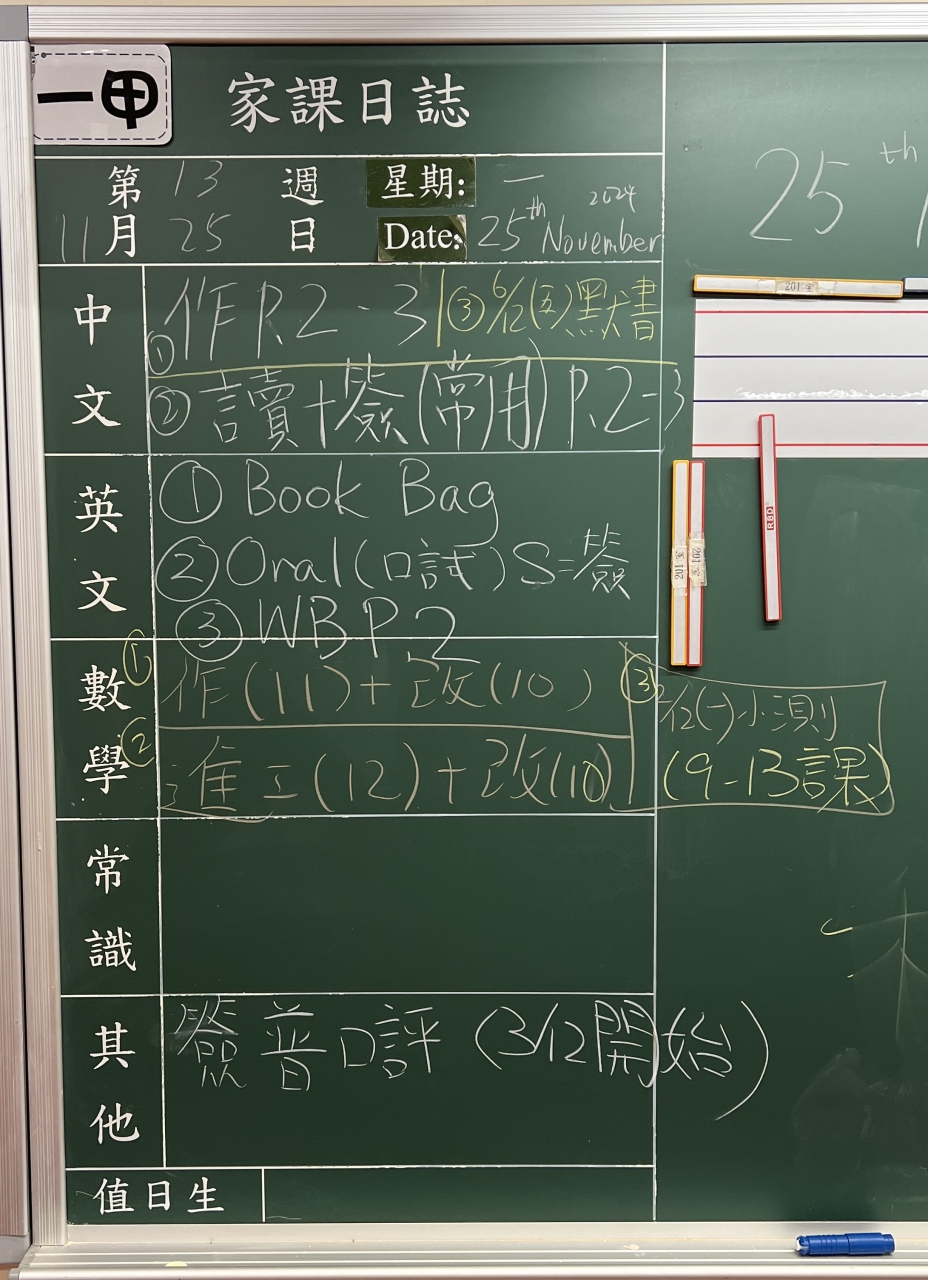 一甲 家課日誌
第 13 週 星期: 一
11月 25 日 Date: 25th November 2024
25th
201室
中文
①作P.2-3 ③6/12(五)默書
②讀+簽(常用)P.2-3
英文
① Book Bag
② Oral(口試)S=簽
③ WB P.2
數學
① 作(11)+改(10)
② 進工(12)+改(10)
③ 2/12(一)小測
(9-13課)
201室
RBD
常識
其他
簽普口評(3/12開始)
值日生